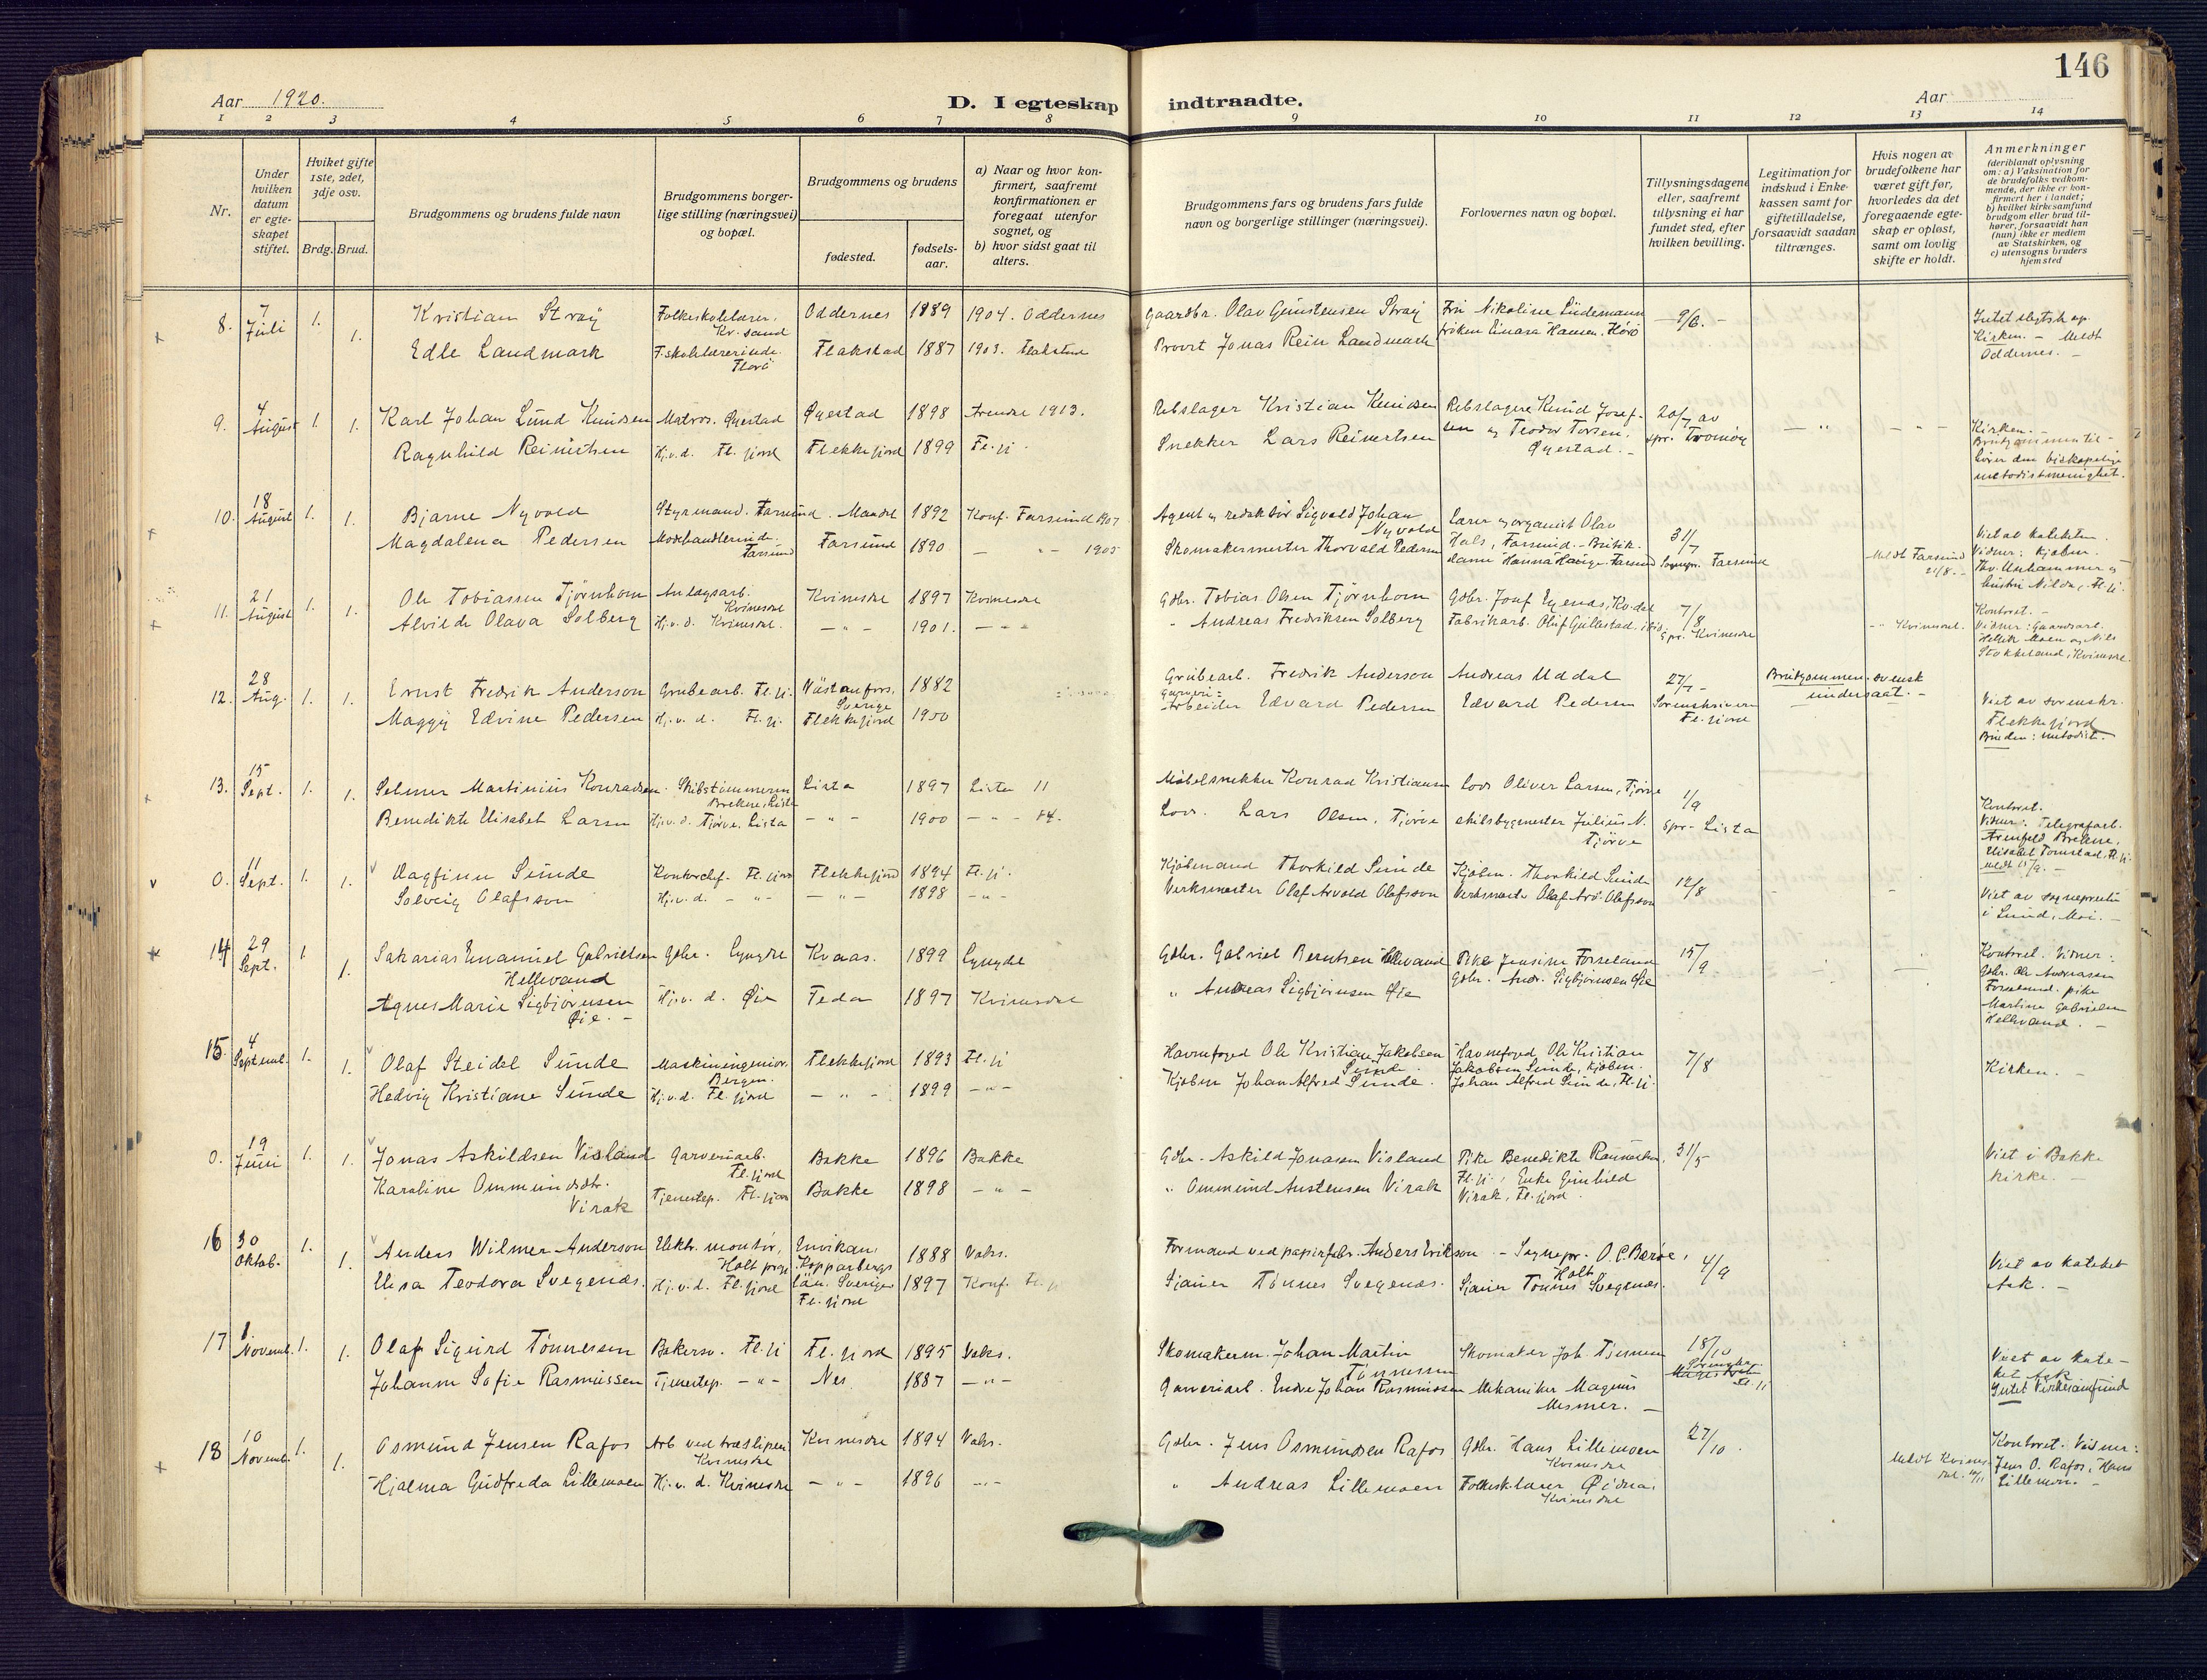 146
Aar 1920.
D. I egteskap indtraadte.
Aar
1 2 3 4 5 6 7 8 9 10 11 12 13 14
Nr.
Under hvilken datum er egteskapet stiftet.
Hvilket gifte 1ste, 2det, 3dje osv.
Brdg. Brud.
Brudgommens og brudens fulde navn
Brudgommens borgerlige stilling (næringsvei) og bopæl.
Brudgommens og brudens
fødested.
fødselsaar.
a) Naar og hvor konfirmert, saafremt konfirmationen er foregaat utenfor sognet, og
b) hvor sidst gaat til alters.
Brudgommens fars og brudens fars fulde navn og borgerlige stillinger (næringsvei).
Forlovernes navn og bopæl.
Tillysningsdagene eller, saafremt tillysning ei har fundet sted, efter hvilken bevilling.
Legitimation for indskud i Enkekassen samt for giftetilladelse, forsaavidt saadan tiltrænges.
Hvis nogen av brudefolkene har været gift før, hvorledes da det foregaaende egteskap er opløst, samt om lovlig skifte er holdt.
Anmerkninger
(deriblandt oplysning om: a) Vaksination for de brudefolks vedkommende, der ikke er konfirmert her i landet;
b) hvilket kirkesamfund brudgom eller brud tilhører, forsaavidt han (hun) ikke er medlem av Statskirken, og
c) utensogns bruders hjemsted
8. 7 Juli 1. Kristian Straÿ Folkeskolelærer, Kr.sand Oddernes 1889 1904. Oddernes Gaardbr. Olav Straÿ Fru Nikoline Lüdemann 9/6. -
1. Edle Landmark F.skolelærerinde. Florö Flakstad 1887 1903. Flakstad Provst Jonas Rein Landmark frøken Einara Florö
Kirken. - Meldt Oddernes. -
9. 4 August 1. 1. Karl Johan Lund Knudsen Matros. Øyestad Øyestad 1898 Arendal 1913. Rebslager Kristian Knudsen Rebslagere Knud Josefsen og Teodor Torsen, Øyestad. - 20/7 av spr. Tromöy
Ragnhild Reinertsen Hj.v.d. Fl.fjord Flekkefjord 1899 Fl.fj. Snekker Lars Reinertsen
Kirken. - Brudgommen tilhører den biskopelige metodistmenighet.
10. 18 August 1. 1. Bjarne Nyvold Styrmand. Farsund Mandal 1892 Konf. Farsund 1907 Agent og redaktør Sigvald Johan Nyvold Lærer og organist Olav Hals, Farsund. 31/7
Magdalena Pedersen Modehandlerinde. Farsund Farsund 1890 - " - 1905 Skomakermester Thorvald Pedersen Hanna Hauge. Farsund Sognepr. Farsund
Meldt Farsund 21/8. -
Viet av kateketen. Vidner: kjøbm.
11. 21 August 1. 1. Ole Tobiassen Tjørnhom Anlægsarb. Kvinesdal Kvinesdal 1897 Kvinesdal Gdbr. Tobias Olsen Tjørnhom Gdbr. Josef Egenes, Kv.dal 7/8
Alvilde Olava Solberg Hj.v.d. Kvinesdal. - " - 1901. - " - " Andreas Fredriksen Solberg Fabrikarb. Oluf Gullestad. ibid. Spr. Kvinesdal
- " Kvinesdal.
Kontoret. - Vidner: Gaardarb. Moen og Nils Stokkeland, Kvinesdal.
12. 28 Aug. 1. 1. Ernst Fredrik Anderson Grubearb. Fl.fj. Västanfors, Sverige 1882 Grubearb. Fredrik Anderson Andreas Uddal 27/7 - Brudgommen svensk undersaat. -
Maggy Edvine Pedersen Hj.v.d. Fl.fj. Flekkefjord 1900 Garveri-arbeider Edvard Pedersen Edvard Pedersen Sorenskriveren Fl.fjord
Viet av sorenskr. Flekkefjord Bruden: metodist. -
13. 15 Sept. 1. 1. Selmer Martinius Konradsen. Skibstømmerm. Brekne, Lista Lista 1897 Lista 11 Møbelsnekker Konrad Kristiansen Lods Oliver Larsen, Tjørve 1/9
Benedikte Elisabet Larsen Hj.v.d. Tjørve, Lista - " - 1900 - " - 14. Lods. Lars Olsen, Tjørve skibsbygmester Julius N. Tjörve Spr. Lista
Kontoret. Vidner: Telegrafarb. Arenfeld Brekne, Elisabet Tomstad, Fl.fj. meldt 15/9. -
0. 11 Sept. 1. 1. Dagfinn Sunde Kontorchef. Fl.fjord Flekkefjord 1894 Fl.fj. Kjøbmand Thorkild Sunde Kjøbm. Thorkild Sunde 12/8
Solveig Olafsson Hj.v.d. - " - - " - 1898 - " - Verksmester Olaf Arvold Olafsson Verksmester Olaf Arv. Olafsson
Viet av sognepresten i Lund, Moi. -
14 29 Sept. 1 1. Sakarias Emanuel Gabrielsen Hellevand Gdbr. Lyngdal Kvaas. 1899 Lyngdal Gdbr. Gabriel Berntsen Hellevand Pike Jensine Forseland 15/9
Agnes Marie Sigbjörnsen Øie. - Hj.v.d. Øie Feda 1897 Kvinesdal " Andreas Sigbjørnsen Øie Gdbr. Andr. Sigbjørnsen Øie
Kontoret. Vidner: Gdbr. Ole Andreassen Forseland. pike Martine Gabrielsen Hellevand. -
15. 4 Septemb. 1. 1. Olaf Steidel Sunde Maskiningeniør. Bergen. Flekkefjord 1893 Fl.fj Havnefoged Ole Kristian Jakobsen Sunde. Havnefoged Ole Kristian Jakobsen Sunde, kjøbm. Johan Alfred Sunde, Fl.fj. 7/8
Hedvig Kristiane Sunde Hj.v.d. Fl.fjord - " - 1899 - " - Kjøbm Johan Alfred Sunde.
Kirken. -
0. 19 Juni 1. 1. Jonas Askildsen Visland Garveriarb. Fl.fjord Bakke 1896 Bakke Gdbr. Askild Jonassen Visland Pike Benedikte Fl.fj., Enke Gunhild Virak, Fl.fjord. 31/5
Karoline Ommundsdtr. Virak Tjenestep. Fl.fjord Bakke 1898 - " - " Ommund Austensen Virak
Viet i Bakke kirke. -
16 30 Oktob. 1. 1. Anders Wilmer Anderson Elektr. montör, Holt prgj. Envikan, Kopparbergs län. Sverige 1888 Vaks. Formand ved papirfabr. Anders Erikson - Sognepr. O.C. Børse, Holt 4/9
Elesa Teodora Svegenæs. Hj.v.d. Fl.fjord Fl.fjord 1897 Konf. Fl.fj Sjauer Tönnes Svegenæs. Sjauer Tönnes Svegenæs.
Viet av kateket Ask. -
17 1 Novemb. 1. 1. Olaf Sigurd Tönnessen Bakersv. Fl.fj Fl.fjord 1895 Vaks. Skomakerm. Johan Martin Tønnessen Skomaker Joh. Tønnessen 18/10
Johanne Sofie Rasmussen Tjenestep. - " - Nes 1887 - " - Garveriarb. Endre Johan Rasmussen Mekaniker Magnus Mesmer. - Fl.fj
Viet av kateket Ask Intet kirkesamfund
18 10 Novemb. 1. 1. Osmund Jensen Rafos Arb ved træsliperi Kvinesdal Kvinesdal 1894 Vaks. Gdbr. Jens Osmundsen Rafos Gdbr. Hans Lillemoen Kvinesdal 27/10.
Hjalma Gudfreda Lillemoen Hj.v.d. Kvinesdal - " - 1896 - " - " Andreas Lillemoen Folkesk.lærer Øidna, Kvinesdal
Meldt Kvinesdal.
Kontoret. Vidner: Jens O. Rafos, Hans Lillemoen. -